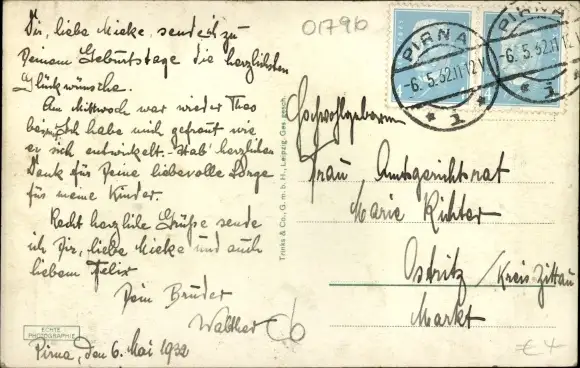 Dir, liebe Mieke, sende ich zu
Deinem Geburtstage die herzlichsten
Glückwünsche.
Am Mittwoch war wieder Theo
bei mir. Ich habe mich gefreut wie
er sich entwickelt. Hab' herzlichen
Dank für Deine liebevolle Sorge
für meine Kinder.
Recht herzliche Grüße sende
ich Dir, liebe Mieke und auch
liebem Felix
Dein Bruder
Walther
ECHTE
PHOTOGRAPHIE
Pirna, den 6. Mai 1932
Trinks & Co., G. m. b. H., Leipzig. Ges. gesch.
0179b
PIRNA
-6.5.32.11-12V.
* 1 *
PIRNA
-6.5.32.11-12V.
1 *
Hochwohlgeboren
Frau Amtsgerichtsrat
Marie Richter
Ostritz / Kreis Zittau
Markt
€ 4